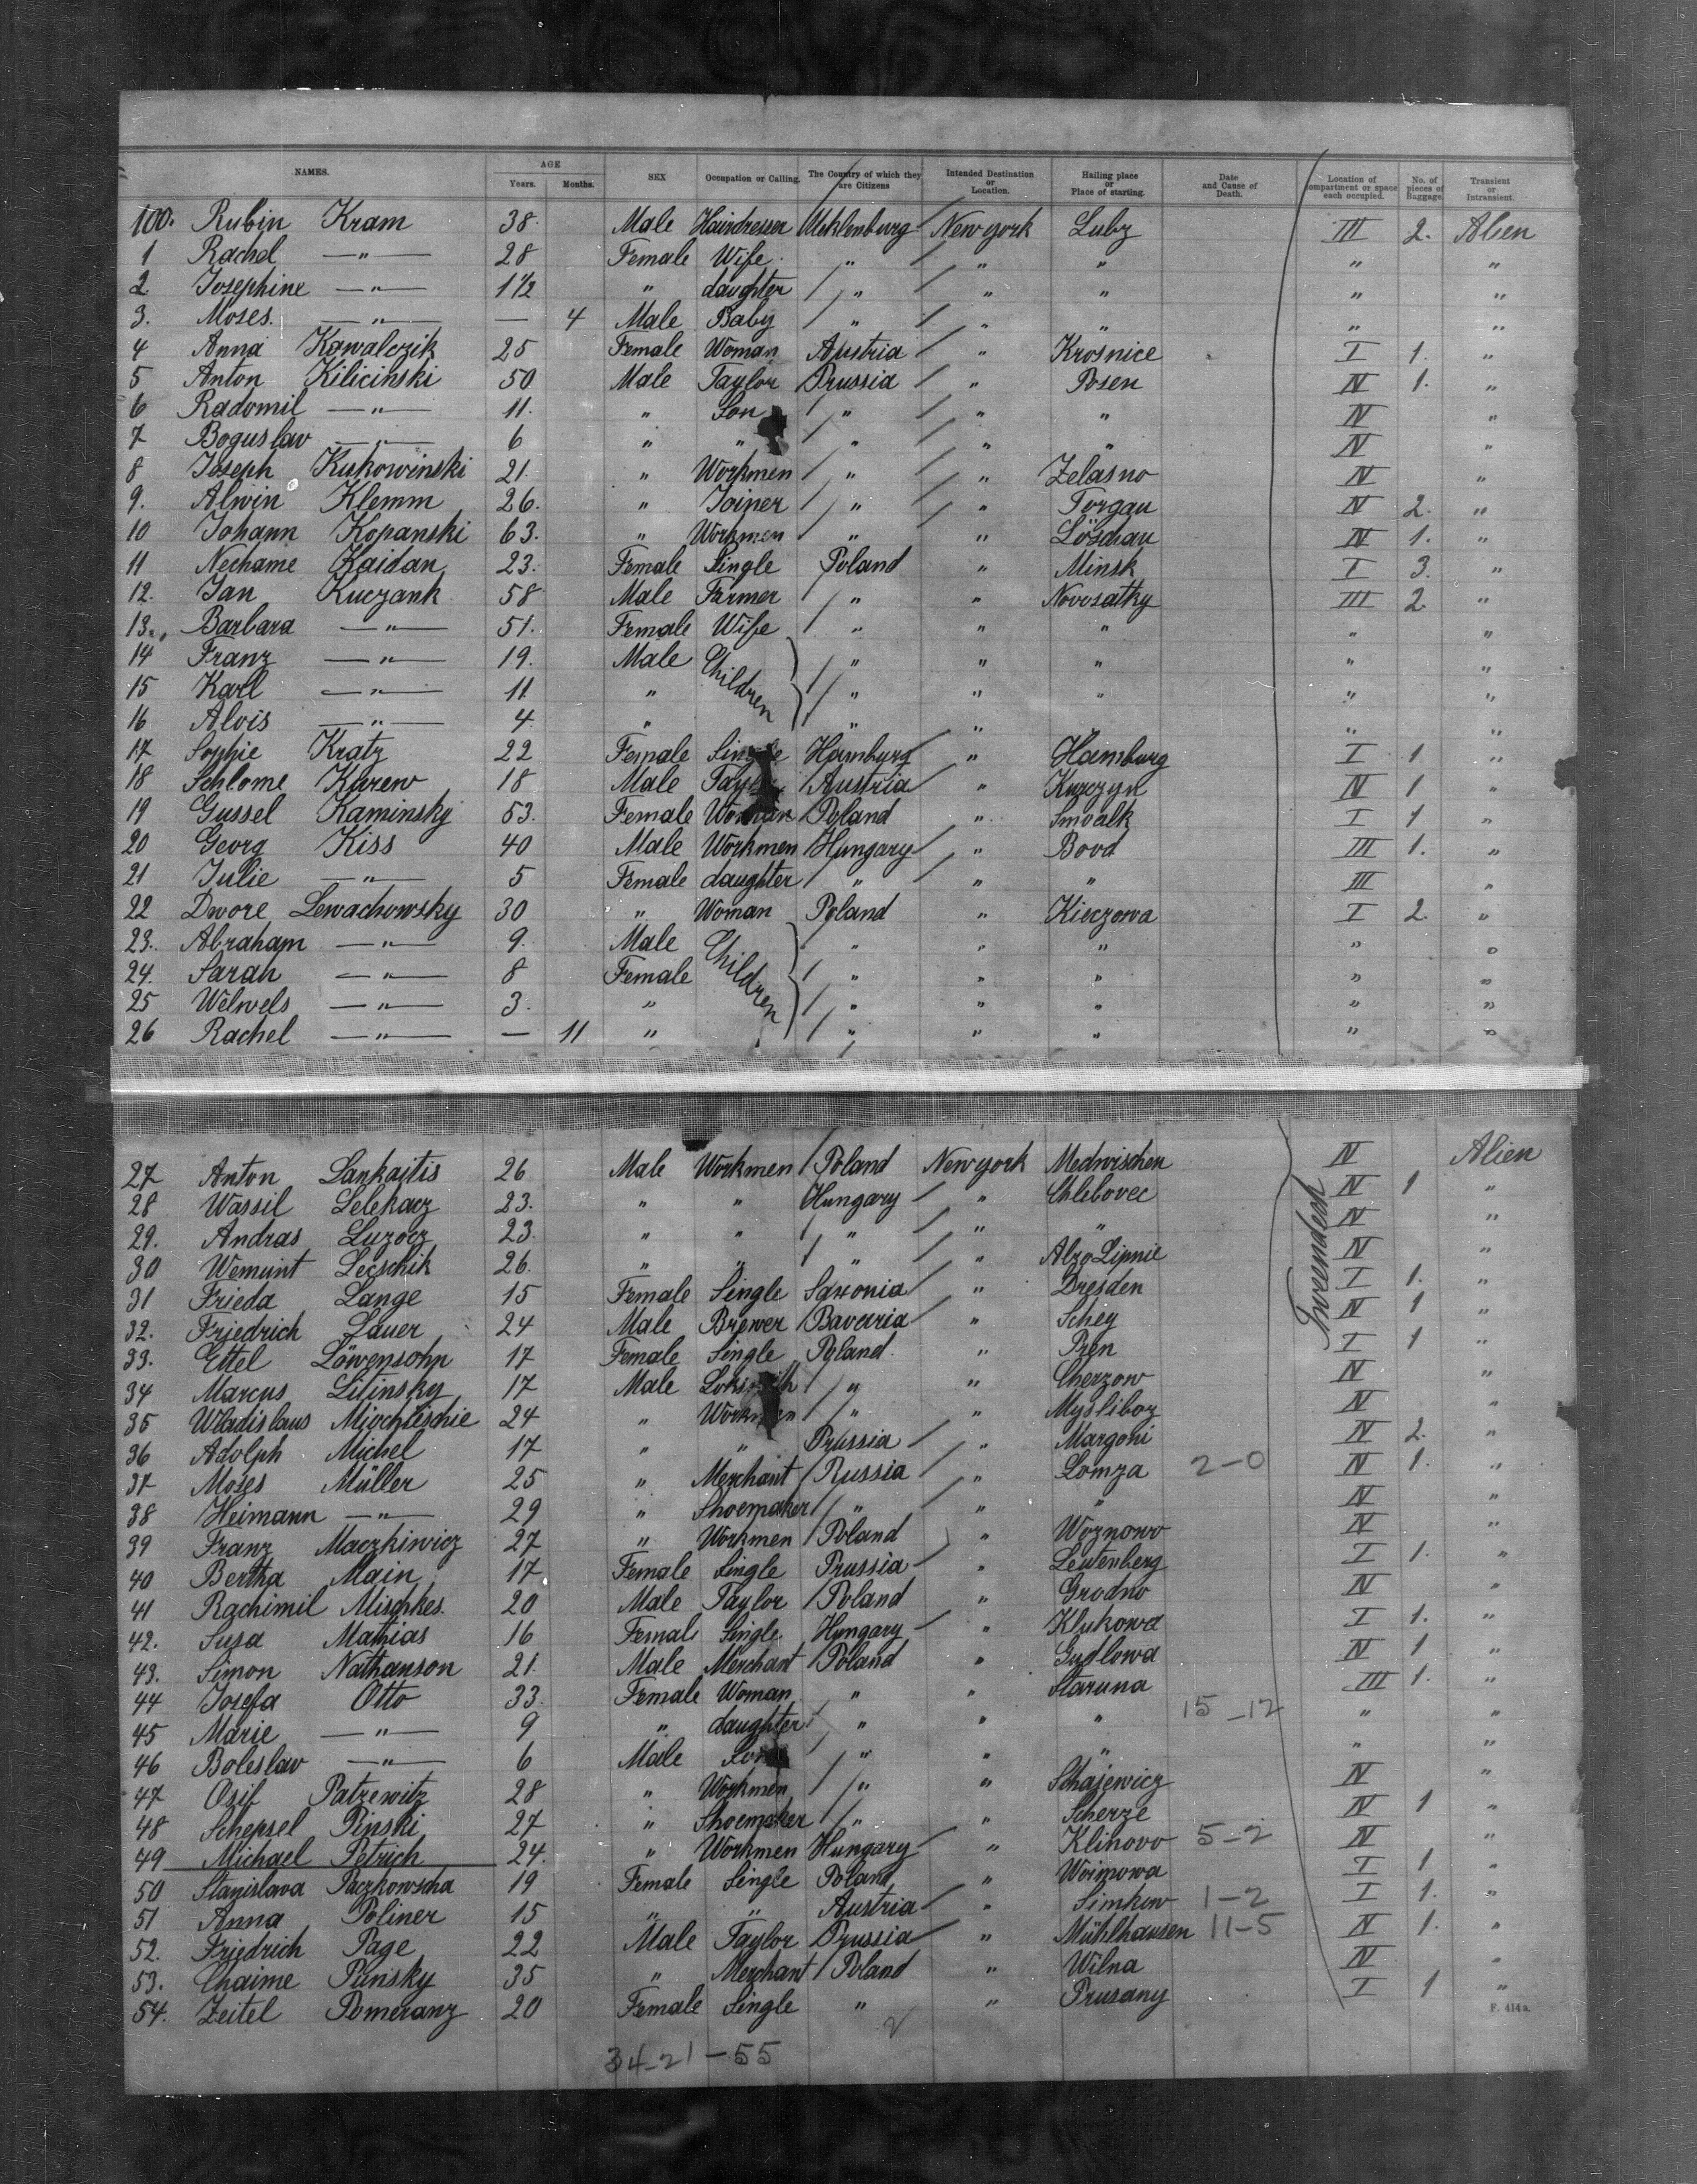 NAMES. AGE Years. Months. SEX Occupation or Calling. The Country of which they are Citizens Intended Destination or Location. Hailing place or Place of starting. Date and Cause of Death. Location of compartment or space each occupied. No. of pieces of Baggage. Transient or Intransient.
100. Rubin Kram 38. Male Hairdresser Meklenburg New york Lubz III 2. Alien
1 Rachel —"— 28 Female Wife. " " " " "
2. Josephine —"— 1 1/2 " daughter " " " " "
3. Moses. —"— — 4 Male Baby " " " " "
4 Anna Kawalczik 25 Female Woman Austria " Krosnice I 1. "
5 Anton Kilicinski 50 Male Taylor Prussia " Posen IV 1. "
6 Radomil —"— 11. " Son " " " IV "
7 Boguslav —"— 6 " " " " " IV "
8 Joseph Kukowinski 21. " Workmen " " Zelasno IV "
9. Alwin Klemm 26. " Joiner " " Torgau IV 2. "
10 Johann Kopanski 63. " Workmen " " Löschau IV 1. "
11 Nechame Kaidan 23. Female Single Poland " Minsk I 3. "
12. Jan Kuczank 58 Male Farmer " " Novosatky III 2. "
13. Barbara —"— 51. Female Wife " " " " "
14 Franz —"— 19. Male Children " " " " "
15 Karl —"— 11. " " " " " "
16 Alois —"— 4. " " " " "
17 Sophie Kratz 22 Female Single Hamburg " Hamburg I 1 "
18 Schlome Kurew 18 Male Taylor Austria " Kurczyk IV 1 "
19 Gussel Kaminsky 53. Female Woman Poland " Smvalk I 1 "
20 Georg Kiss 40 Male Workmen Hungary " Bova III 1. "
21 Julie —"— 5 Female daughter " " " III "
22 Dwore Lewachowsky 30 " Woman Poland " Kieczowa I 2. "
23. Abraham —"— 9. Male Children " " " " "
24. Sarah —"— 8 Female " " " " "
25 Welwels —"— 3. " " " " " "
26 Rachel —"— — 11 " " " " " "
27 Anton Lankajtis 26 Male Workmen Poland New york Medwischen IV Alien
28 Wassil Lelekacz 23. " " Hungary " Chlebovec IV 1 "
29. Andras Luzocz 23. " " " " " IV "
30 Wemunt Lecschik 26. " " " " Alzo Lipnie IV "
31 Frieda Lange 15 Female Single Saxonia " Dresden I 1. "
32. Friedrich Lauer 24 Male Brewer Bavaria " Scheg IV 1 "
33. Ettel Löwensohn 17 Female Single Poland " Pren I 1 "
34 Marcus Litinsky 17 Male Loksmith " " Cherzow IV "
35 Wladislaus Miochlischie 24 " Workmen " " Mysliboz IV "
36 Adolph Michel 17 " " Prussia " Margoni IV 2. "
37 Moses Müller 25 " Merchant Russia " Lomza 2-0 IV 1. "
38 Heimann —"— 29 " Shoemaker " " " IV "
39 Franz Maczkiwicz 27 " Workmen Poland " Woznowo IV "
40 Bertha Main 17 Female Single Prussia " Leutenberg I 1. "
41 Rachimil Mischkes. 20 Male Taylor Poland " Grodno IV "
42. Susa Mathias 16 Female Single Hungary " Klukowa I 1. "
43. Simon Nathanson 21. Male Merchant Poland " Gudlowa IV 1 "
44 Josefa Otto 33 Female Woman " " Staruna III 1. "
45 Marie —"— 9 " daughter " " " 15-12 " "
46 Boleslav —"— 6 Male Son " " " " "
47 Osif Patzewitz 28 " Workmen " " Schajewicz IV "
48 Schepsel Pinski 27 " Shoemaker " " Scherze IV 1 "
49 Michael Petrich 24. " Workmen Hungary " Klinovo 5-2 IV "
50 Stanislava Paczkowscha 19 Female Single Poland " Woimowa I 1 "
51 Anna Poliner 15 " " Austria " Simkow 1-2 I 1. "
52. Friedrich Page 22 Male Taylor Prussia " Mühlhausen 11-5 IV 1. "
53. Chaime Punsky 35 " Merchant Poland " Wilna IV "
54. Zeitel Pomeranz 20 Female Single " " Prusany I 1 "
Tweendeck
F. 414a.
34-21-55